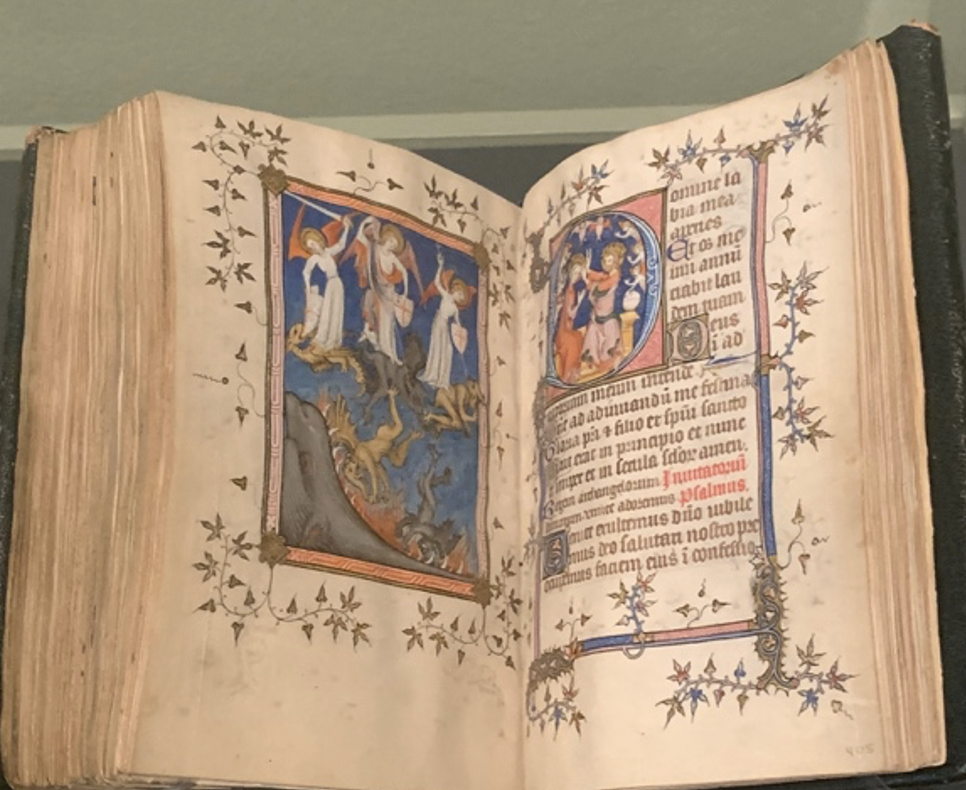 omine la
bia mea
aperies
Et os me
um annū
ciabit lau
dem tuam
Deus
ī ad
iutorium meum intende
ne ad adiuuandū me festina
Gloria pri & filio et spūi sancto
Sicut erat in principio et nunc
& semper et in secula sclor̄ amen.
Regem archangelorum Inuitatoriū
dominum. venite adoremus Psalmus.
Uenite exultemus dn̄o iubile
mus deo salutari nostro pre
occupemus faciem eius ī confessio
405